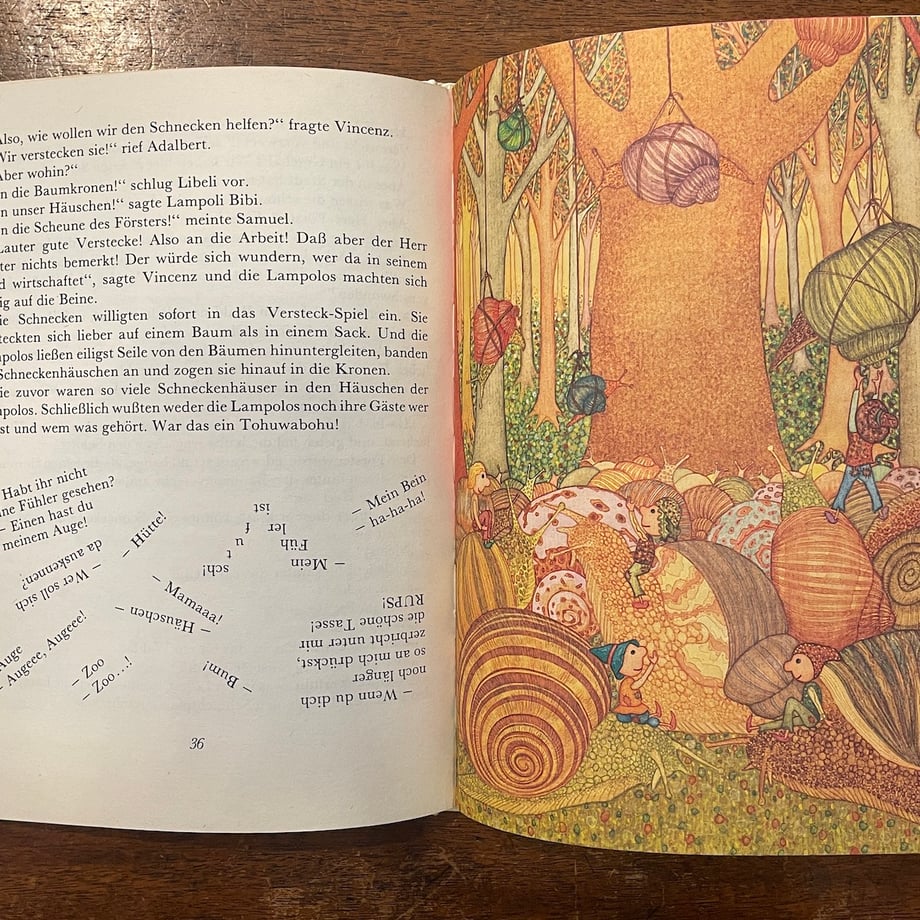 Also, wie wollen wir den Schnecken helfen?“ fragte Vincenz.
Wir verstecken sie!“ rief Adalbert.
Aber wohin?“
n die Baumkronen!“ schlug Libeli vor.
n unser Häuschen!“ sagte Lampoli Bibi.
n die Scheune des Försters!“ meinte Samuel.
Lauter gute Verstecke! Also an die Arbeit! Daß aber der Herr
ter nichts bemerkt! Der würde sich wundern, wer da in seinem
d wirtschaftet“, sagte Vincenz und die Lampolos machten sich
ig auf die Beine.
ie Schnecken willigten sofort in das Versteck-Spiel ein. Sie
teckten sich lieber auf einem Baum als in einem Sack. Und die
mpolos ließen eiligst Seile von den Bäumen hinuntergleiten, banden
Schneckenhäuschen an und zogen sie hinauf in die Kronen.
ie zuvor waren so viele Schneckenhäuser in den Häuschen der
mpolos. Schließlich wußten weder die Lampolos noch ihre Gäste wer
ist und wem was gehört. War das ein Tohuwabohu!
Habt ihr nicht
ine Fühler gesehen?
– Einen hast du
meinem Auge!
– Wer soll sich
da auskennen?
– Hütte!
– Mein
Füh
ler
ist
f
u
t
sch!
– Mein Bein
– ha-ha-ha!
– Mamaaa!
– Häuschen
Auge
– Augeee, Augeee!
– Zoo
– Zoo...!
– Bum!
– Wenn du dich
noch länger
so an mich drückst,
zerbricht unter mir
die schöne Tasse!
RUPS!
36